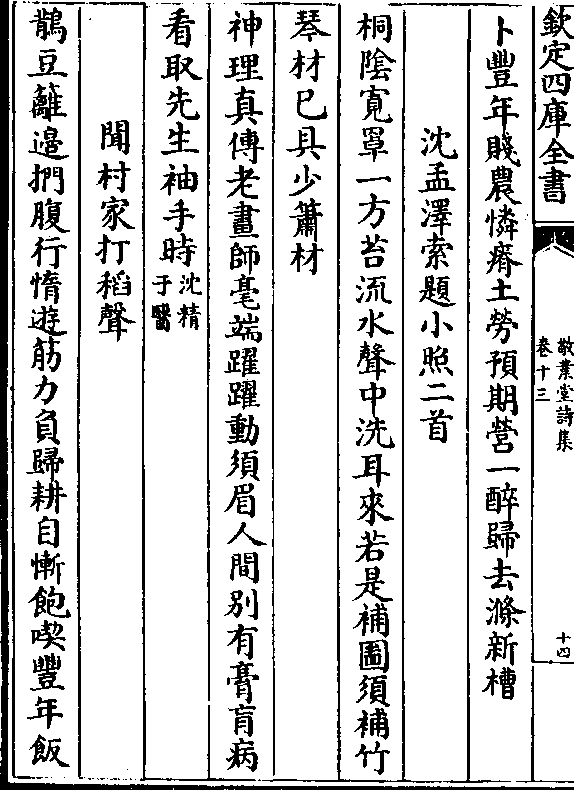 欽定四庫全書
敬業堂詩集
卷十三
十四
卜豐年賤農憐瘠土勞預期營一醉歸去滌新槽
沈孟澤索題小照二首
桐陰寛罩一方苔流水聲中洗耳來若是補圖須補竹
琴材已具少簫材
神理真傳老畫師毫端躍躍動須眉人間别有膏肓病
看取先生袖手時沈精
于醫
聞村家打稻聲
鵲豆籬邉捫腹行惰遊筋力負歸耕自慚飽喫豐年飯